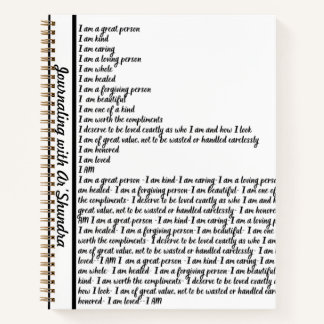 Journaling with Ar'Shundra
I am a great person
I am kind
I am caring
I am a loving person
I am whole
I am healed
I am a forgiving person
I am beautiful
I am one of a kind
I am worth the compliments
I deserve to be loved exactly as who I am and how I look
I am of great value, not to be wasted or handled carelessly
I am honored
I am loved
I AM
I am a great person - I am kind- I am caring- I am a loving person
am healed- I am a forgiving person- I am beautiful- I am one of
the compliments- I deserve to be loved exactly as who I am and how
great value, not to be wasted or handled carelessly- I am honored-
AM I am a great person - I am kind- I am caring- I am a loving
healed- I am a forgiving person- I am beautiful- I am one
worth the compliments - I deserve to be loved exactly as who I am
am of great value, not to be wasted or handled carelessly- I am
loved- I AM I am a great person - I am kind- I am caring- I am
am whole- I am healed- I am a forgiving person - I am beautiful
kind- I am worth the compliments- I deserve to be loved exactly
how I look- I am of great value, not to be wasted or handled
honored- I am loved- I AM